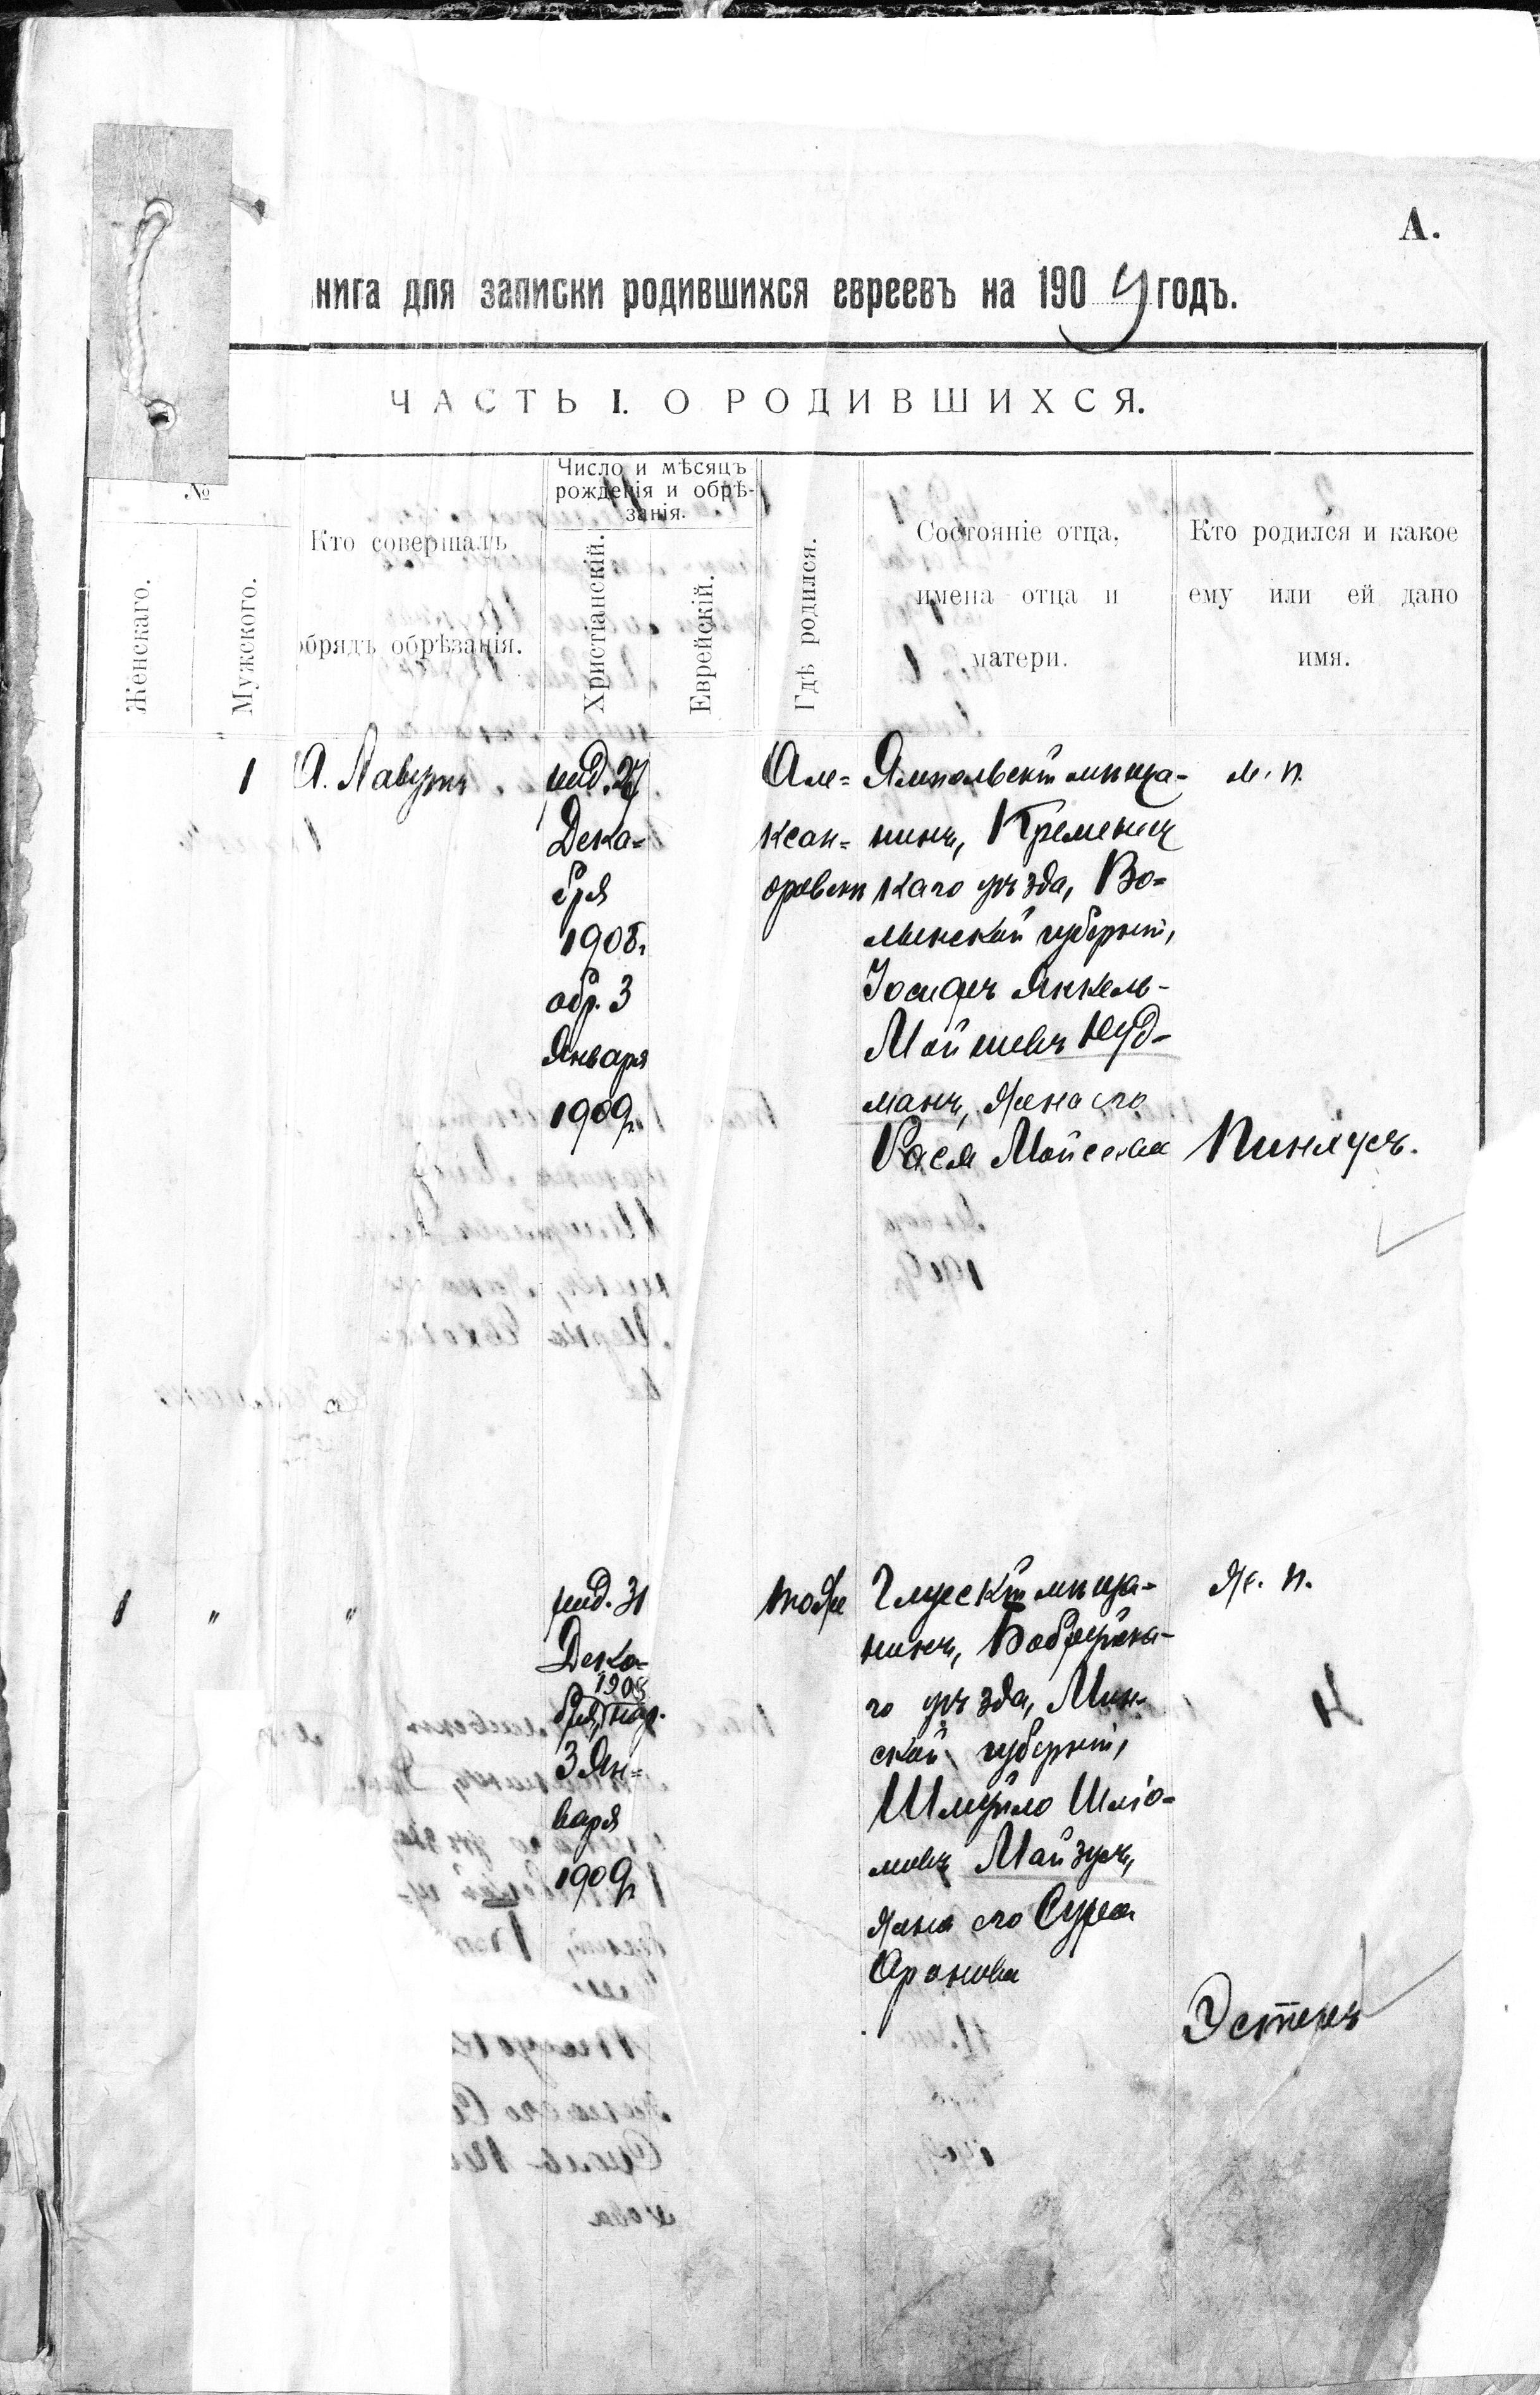 А.
нига для записки родившихся евреевъ на 1909 годъ.
ЧАСТЬ I. О РОДИВШИХСЯ.
№
Женскаго.
Мужского.
Кто совершалъ
обрядъ обрѣзанія.
Число и мѣсяцъ
рожденія и обрѣ-
занія.
Христіанскій.
Еврейскій.
Гдѣ родился.
Состояніе отца,
имена отца и
матери.
Кто родился и какое
ему или ей дано
имя.
1
А.
27
Дека=
бря
1908г.
обр. 3
Января
1909г.
Але=
ксан=
Ямпольскій мѣща-
нинъ, Кременец
каго уѣзда, Во=
лынской губерніи,
Іосифъ Янкель-
Мошковъ Нуд-
манъ, жена его
Рася
м. п.
Пинхусъ.
1
"
"
31
Дека-
1908
бря, нар.
3 Ян=
варя
1909г.
тоже
Глускій мѣща-
нинъ, Бобруйска-
го уѣзда, Мин-
ской губерніи,
Шмуйло Шліо-
мовъ Майзусъ,
жена его Сура
Аронова
ж. п.
Эстеръ